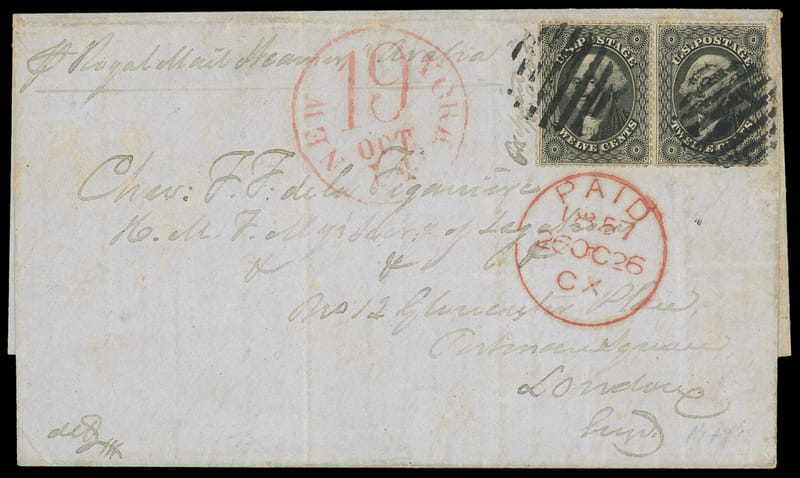 p Royal Mail Steamer "Arabia"
NEW YORK
19
OCT
U.S. POSTAGE
TWELVE CENTS
U.S. POSTAGE
TWELVE CENTS
Chev: F. F. de la Figanière
H. M. F. M of Legation
& & &
No 12 Gloucester Place,
Portman Square,
London
PAID
1857
26 OC 26
CX